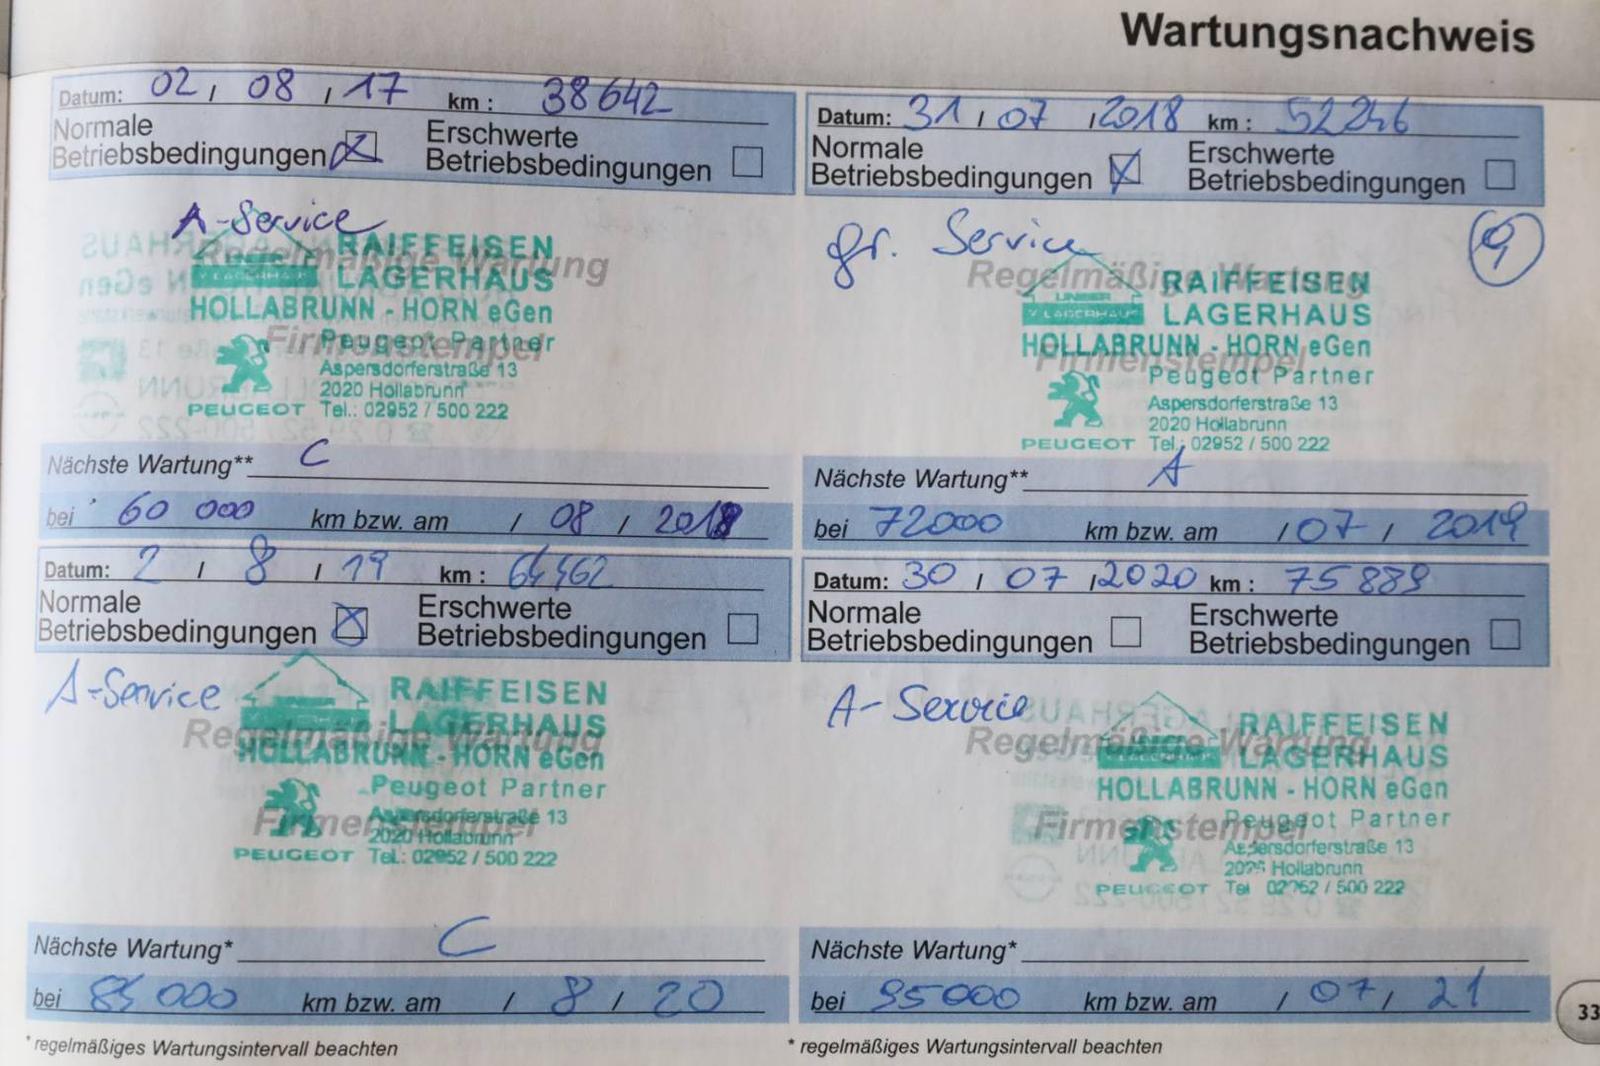 Wartungsnachweis
Datum: 02 / 08 / 17 km : 38642
Normale Betriebsbedingungen Erschwerte Betriebsbedingungen
A-Service
Regelmäßige Wartung
RAIFFEISEN
LAGERHAUS
HOLLABRUNN - HORN eGen
Firmenstempel
Peugeot Partner
Aspersdorferstraße 13
2020 Hollabrunn
PEUGEOT Tel.: 02952 / 500 222
Nächste Wartung** C
bei 60 000 km bzw. am / 08 / 2018
Datum: 31 / 07 / 2018 km : 52246
Normale Betriebsbedingungen Erschwerte Betriebsbedingungen
gr. Service
Regelmäßige Wartung
UNSER
LAGERHAUS
RAIFFEISEN
LAGERHAUS
HOLLABRUNN - HORN eGen
Firmenstempel
Peugeot Partner
Aspersdorferstraße 13
2020 Hollabrunn
PEUGEOT Tel.: 02952 / 500 222
Nächste Wartung** A
bei 72000 km bzw. am / 07 / 2019
Datum: 2 / 8 / 19 km : 64462
Normale Betriebsbedingungen Erschwerte Betriebsbedingungen
A-Service
Regelmäßige Wartung
RAIFFEISEN
LAGERHAUS
HOLLABRUNN - HORN eGen
Firmenstempel
Peugeot Partner
Aspersdorferstraße 13
2020 Hollabrunn
PEUGEOT Tel.: 02952 / 500 222
Nächste Wartung* C
bei 000 km bzw. am / 8 / 20
* regelmäßiges Wartungsintervall beachten
Datum: 30 / 07 / 2020 km : 75889
Normale Betriebsbedingungen Erschwerte Betriebsbedingungen
A-Service
Regelmäßige Wartung
RAIFFEISEN
LAGERHAUS
HOLLABRUNN - HORN eGen
Firmenstempel
Peugeot Partner
Aspersdorferstraße 13
Hollabrunn
PEUGEOT Tel / 500 222
Nächste Wartung*
bei 95000 km bzw. am / 07 / 21
* regelmäßiges Wartungsintervall beachten
33